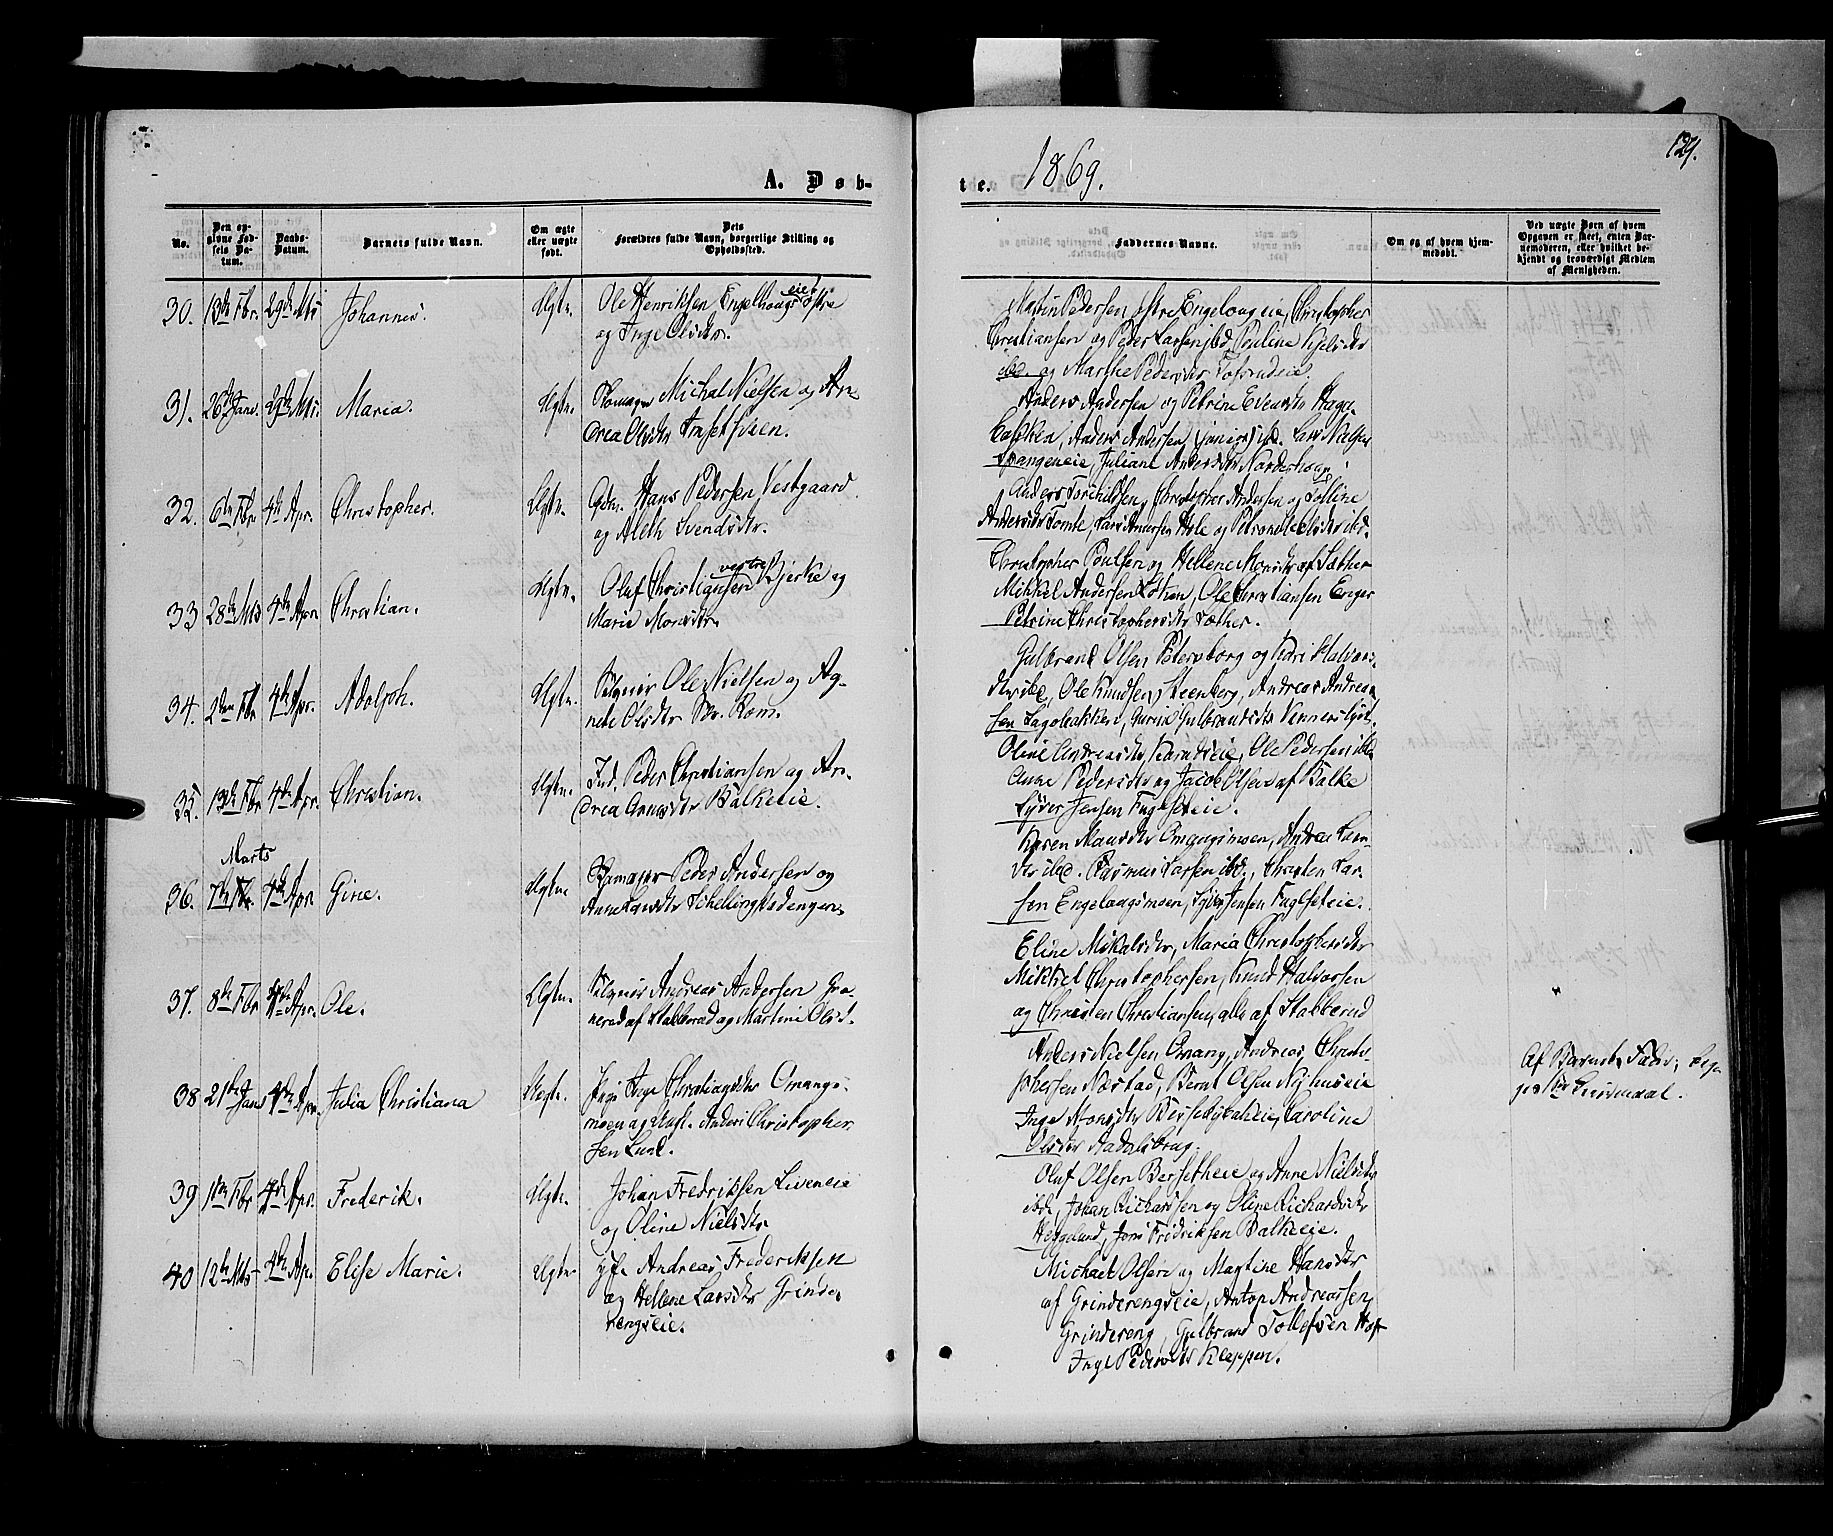 129.
A. Døb-
te. 1869.
No.
Den op-
givne Fød-
sels Da-
tum.
Daabs-
Datum.
Barnets fulde Navn.
Om ægte
eller uægte
født.
Dets
Forældres fulde Navn, borgerlige Stilling og
Opholdssted.
Faddernes Navne.
Om og af hvem hjem-
medøbt.
Ved uægte Børn af hvem
Opgaven er skeet, enten Bar-
nemoderen, eller hvilket be-
kjendt og troværdigt Medlem
af Menigheden.
30. 13de Fbr. 29de Mts Johannes. Ægte. Ole Henriksen Engelhaugs eie østre
og Inge Olsdtr.
Martin Pedersen østre Engelaugeie, Christopher
Christiansen og Peder Larsen ibd. Pauline
ibd. og Marthe Pedersdtr
31. 26de Janr. 29de Mts. Maria. Ægte. Michal Nielsen og An-
drea Olsdtr
Anders Andersen og Petrine Evensdtr Haga-
bakken, Anders Andersen junior ibd. Lars
Spangeneie, Juliane Andersdtr Norderhoug
32. 6te Fbr 4de Apr. Christopher. Ægte. Gdm. Hans Pedersen Vestgaard
og Aleth Svendsdtr.
Anders Torchildsen, Christopher Andersen og
Andersdtr Tomte, Lars Andersen Hole og Petronelle Olsdtr ibd.
33 28de Mts 4de Apr Christian. Ægte. Oluf Christiansen vestre Bjerke og
Marie Monsdtr.
Christopher Poulsen og Hellene Monsdtr af Sæther
Mikkel Andersen Lohen, Ole Christiansen Enger
Petrine Christophersdtr Sæther.
34. 2den Fbr 4de Apr. Adolph. Ægte. Ole Nielsen og Ag-
nete Olsdtr
Gulbrand Olsen Petersborg og Kari Halvors-
dtr ibd, Ole Knudsen Steenberg, Andreas Andrea-
sen Lagebakken, Gulbrandsdtr
35. 13de Fbr 4de Apr. Christian. Ægte. Ind. Peder Christiansen og An-
drea Arnesdtr Balkeeie.
Oline Andreasdtr Ole Pedersen ibd
Anne Pedersdtr og Jacob Olsen af Balke
Syver Jensen Fuglseteie.
36. 7de Marts 4de Apr Gine. Ægte Peder Andersen og
Anne
Karen
dtr ibd. Rasmus Larsen ibd., Christen Lar-
sen Engelaugsmoen, Syver Jensen Fuglseteie.
37. 8de Fbr 4de Apr. Ole. Ægte. Andreas Andersen Gra-
nerud af Stabberud og Martine Olsd.
Eline Mikalsdtr, Maria Christophersdtr
Mikkel Christophersen, Knud Halvorsen
og Christen Christiansen, alle af Stabberud
38 21de Janr 4de Apr. Julia Christiana Uægt. Pige Inge Christiansdtr Omangs-
moen og Anders Christopher-
sen Lund.
Anders Nielsen Omang, Andreas Christo-
phersen Næstad, Bernt Olsen Nyhuseie
Inge Monsdtr Caroline
Olsdtr Aadalsbrug.
Af Barnets Fader,
39 1ste Fbr 4de Apr. Frederik. Ægte. Johan Fredriksen Liveneie
og Oline Nielsdtr
Oluf Olsen Bersetheie og Anne Nielsdtr
ibd, Johan Richardsen og Oline Richardsdtr
Hegglund, Jens Fredriksen Balkeeie.
40 12te Mts 4de Ap. Elise Marie. Ægte Andreas Frederiksen
og Hellene Larsdtr Grinde-
rengseie.
Michael Olsen og Martine Hansdtr
af Grinderengseie, Anton Andreassen
Grindereng, Gulbrand Tollefsen
Inge Pedersdtr Kleppen.